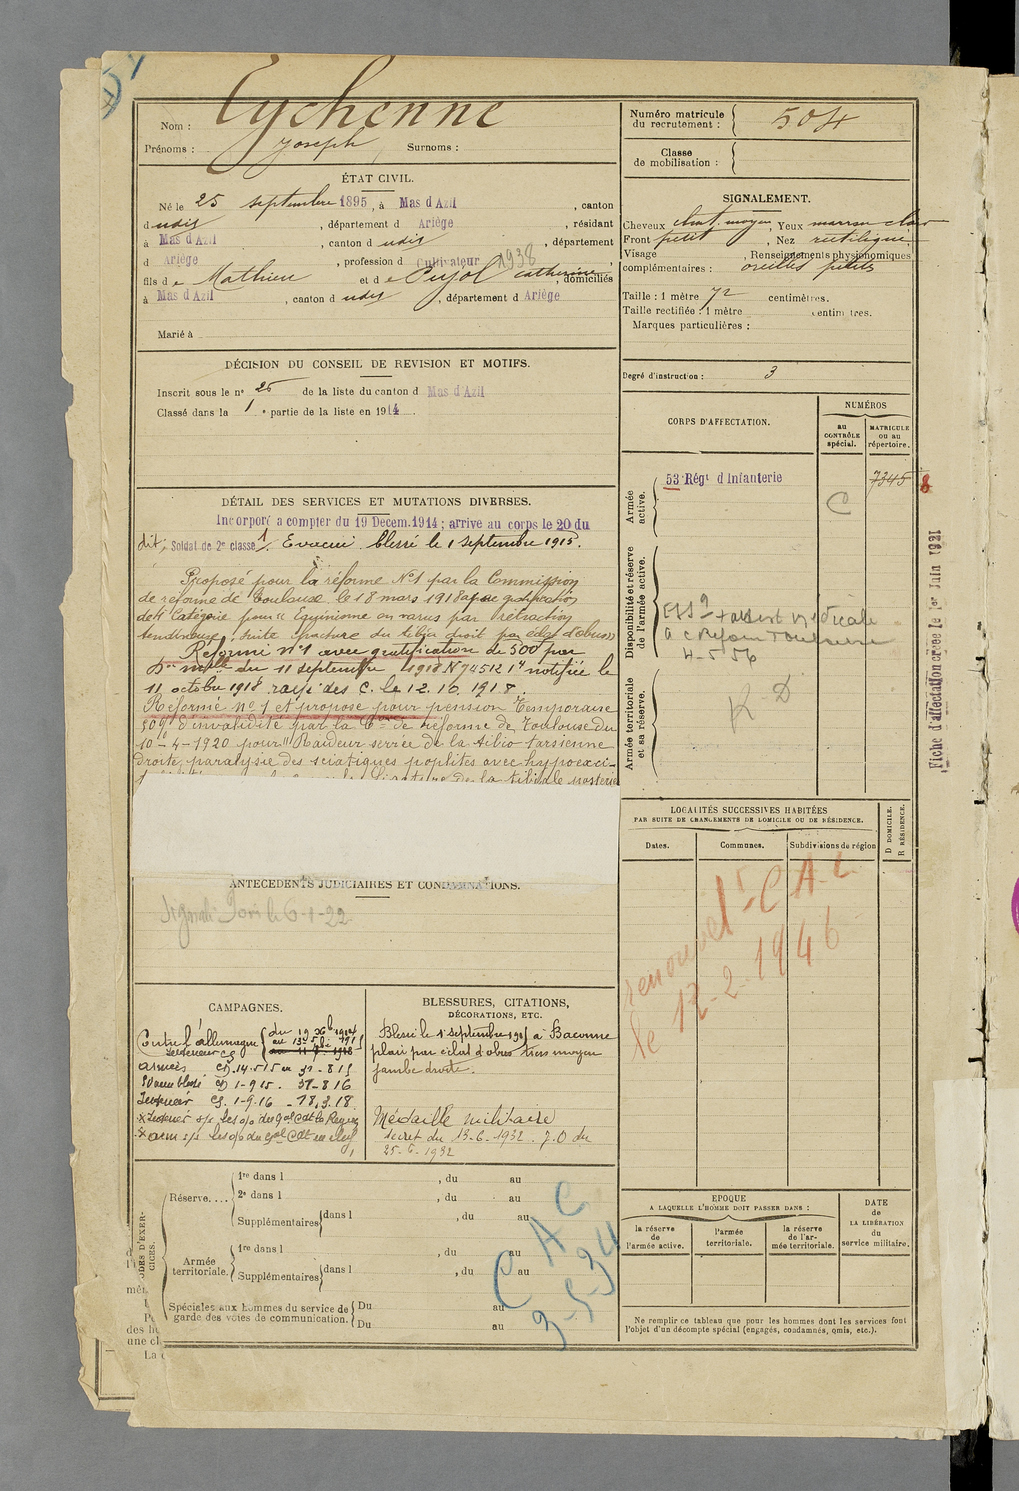 Eychenne
Nom :
Prénoms : Joseph Surnoms :
Numéro matricule du recrutement : 504
Classe de mobilisation :
ÉTAT CIVIL.
Né le 25 septembre 1895, à Mas d'Azil, canton
dudit, département d Ariège, résidant
à Mas d'Azil, canton dudit, département
d Ariège, profession d Cultivateur 1938,
fils de Mathieu et de Pujol Catherine, domiciliés
à Mas d'Azil, canton dudit, département d Ariège
Marié à
SIGNALEMENT.
Cheveux chat. moyen, Yeux marron clair
Front petit, Nez rectiligne
Visage , Renseignements physionomiques
complémentaires : oreilles petites
Taille : 1 mètre 72 centimètres.
Taille rectifiée : 1 mètre centimètres.
Marques particulières :
Degré d'instruction : 3
DÉCISION DU CONSEIL DE REVISION ET MOTIFS.
Inscrit sous le n° 25 de la liste du canton d Mas d'Azil
Classé dans la 1e partie de la liste en 1914.
CORPS D'AFFECTATION.
NUMÉROS
au CONTRÔLE spécial.
MATRICULE ou au répertoire.
Armée active.
53e Régt d'Infanterie
7345
8
C
Disponibilité et réserve de l'armée active.
4-5-56
Armée territoriale et sa réserve.
R D
Fiche d'affectation créée le 1er Juin 1921
DÉTAIL DES SERVICES ET MUTATIONS DIVERSES.
Incorporé a compter du 19 Décem. 1914 ; arrive au corps le 20 du
dit ; Soldat de 2e classe. Evacué blessé le 1 septembre 1915.
Proposé pour la réforme N°1 par la Commission
de réforme de Toulouse le 18 mars 1918 avec gratification
de Catégorie pour "Equinisme en varus par rétraction
tendineuse, suite fracture du tibia droit par éclat d'obus"
Réformé n°1 avec gratification de 500f par
Don mlle du 11 septembre 1918 N° 74512 notifiée le
11 octobre 1918 rayé des C. le 12.10.1918.
Réformé n° 1 et proposé pour pension Temporaire
50% d'invalidité par la Con de réforme de Toulouse du
10-4-1920 pour "Raideur serrée de la tibio tarsienne
droite, paralysie des sciatiques poplités avec hypoexci-
de la tibiale postérie
ANTÉCÉDENTS JUDICIAIRES ET CONDAMNATIONS.
le 6-1-22
LOCALITÉS SUCCESSIVES HABITÉES
PAR SUITE DE CHANGEMENTS DE DOMICILE OU DE RÉSIDENCE.
Dates.
Communes.
Subdivisions de région
D DOMICILE.
R RÉSIDENCE.
renouvelt CAC
le 12-2-1946
CAMPAGNES.
Contre l'allemagne
Intérieur CS
du 19 Xbre 1914
au 13
armées CD. 14.5.15 au 31-8 15
Son blessé CD 1-9 15. 31-8 16
Intérieur CS. 1-9.16 - 18.3.18
BLESSURES, CITATIONS,
DÉCORATIONS, ETC.
Blessé le 1er septembre 1915 à Baconne
plaie par éclat d'obus tiers moyen
jambe droite.
Médaille militaire
décret du 13-6-1932. J.O du
25-6-1932
Réserve....
1re dans l , du au
2e dans l , du au
Supplémentaires dans l , du au
Armée territoriale.
1re dans l , du au
Supplémentaires dans l , du au
Spéciales aux hommes du service de garde des voies de communication.
Du au
Du au
C A C
C
9-5-34
EPOQUE
A LAQUELLE L'HOMME DOIT PASSER DANS :
la réserve de l'armée active.
l'armée territoriale.
la réserve de l'armée territoriale.
DATE de LA LIBÉRATION du service militaire.
Ne remplir ce tableau que pour les hommes dont les services font
l'objet d'un décompte spécial (engagés, condamnés, omis, etc.).